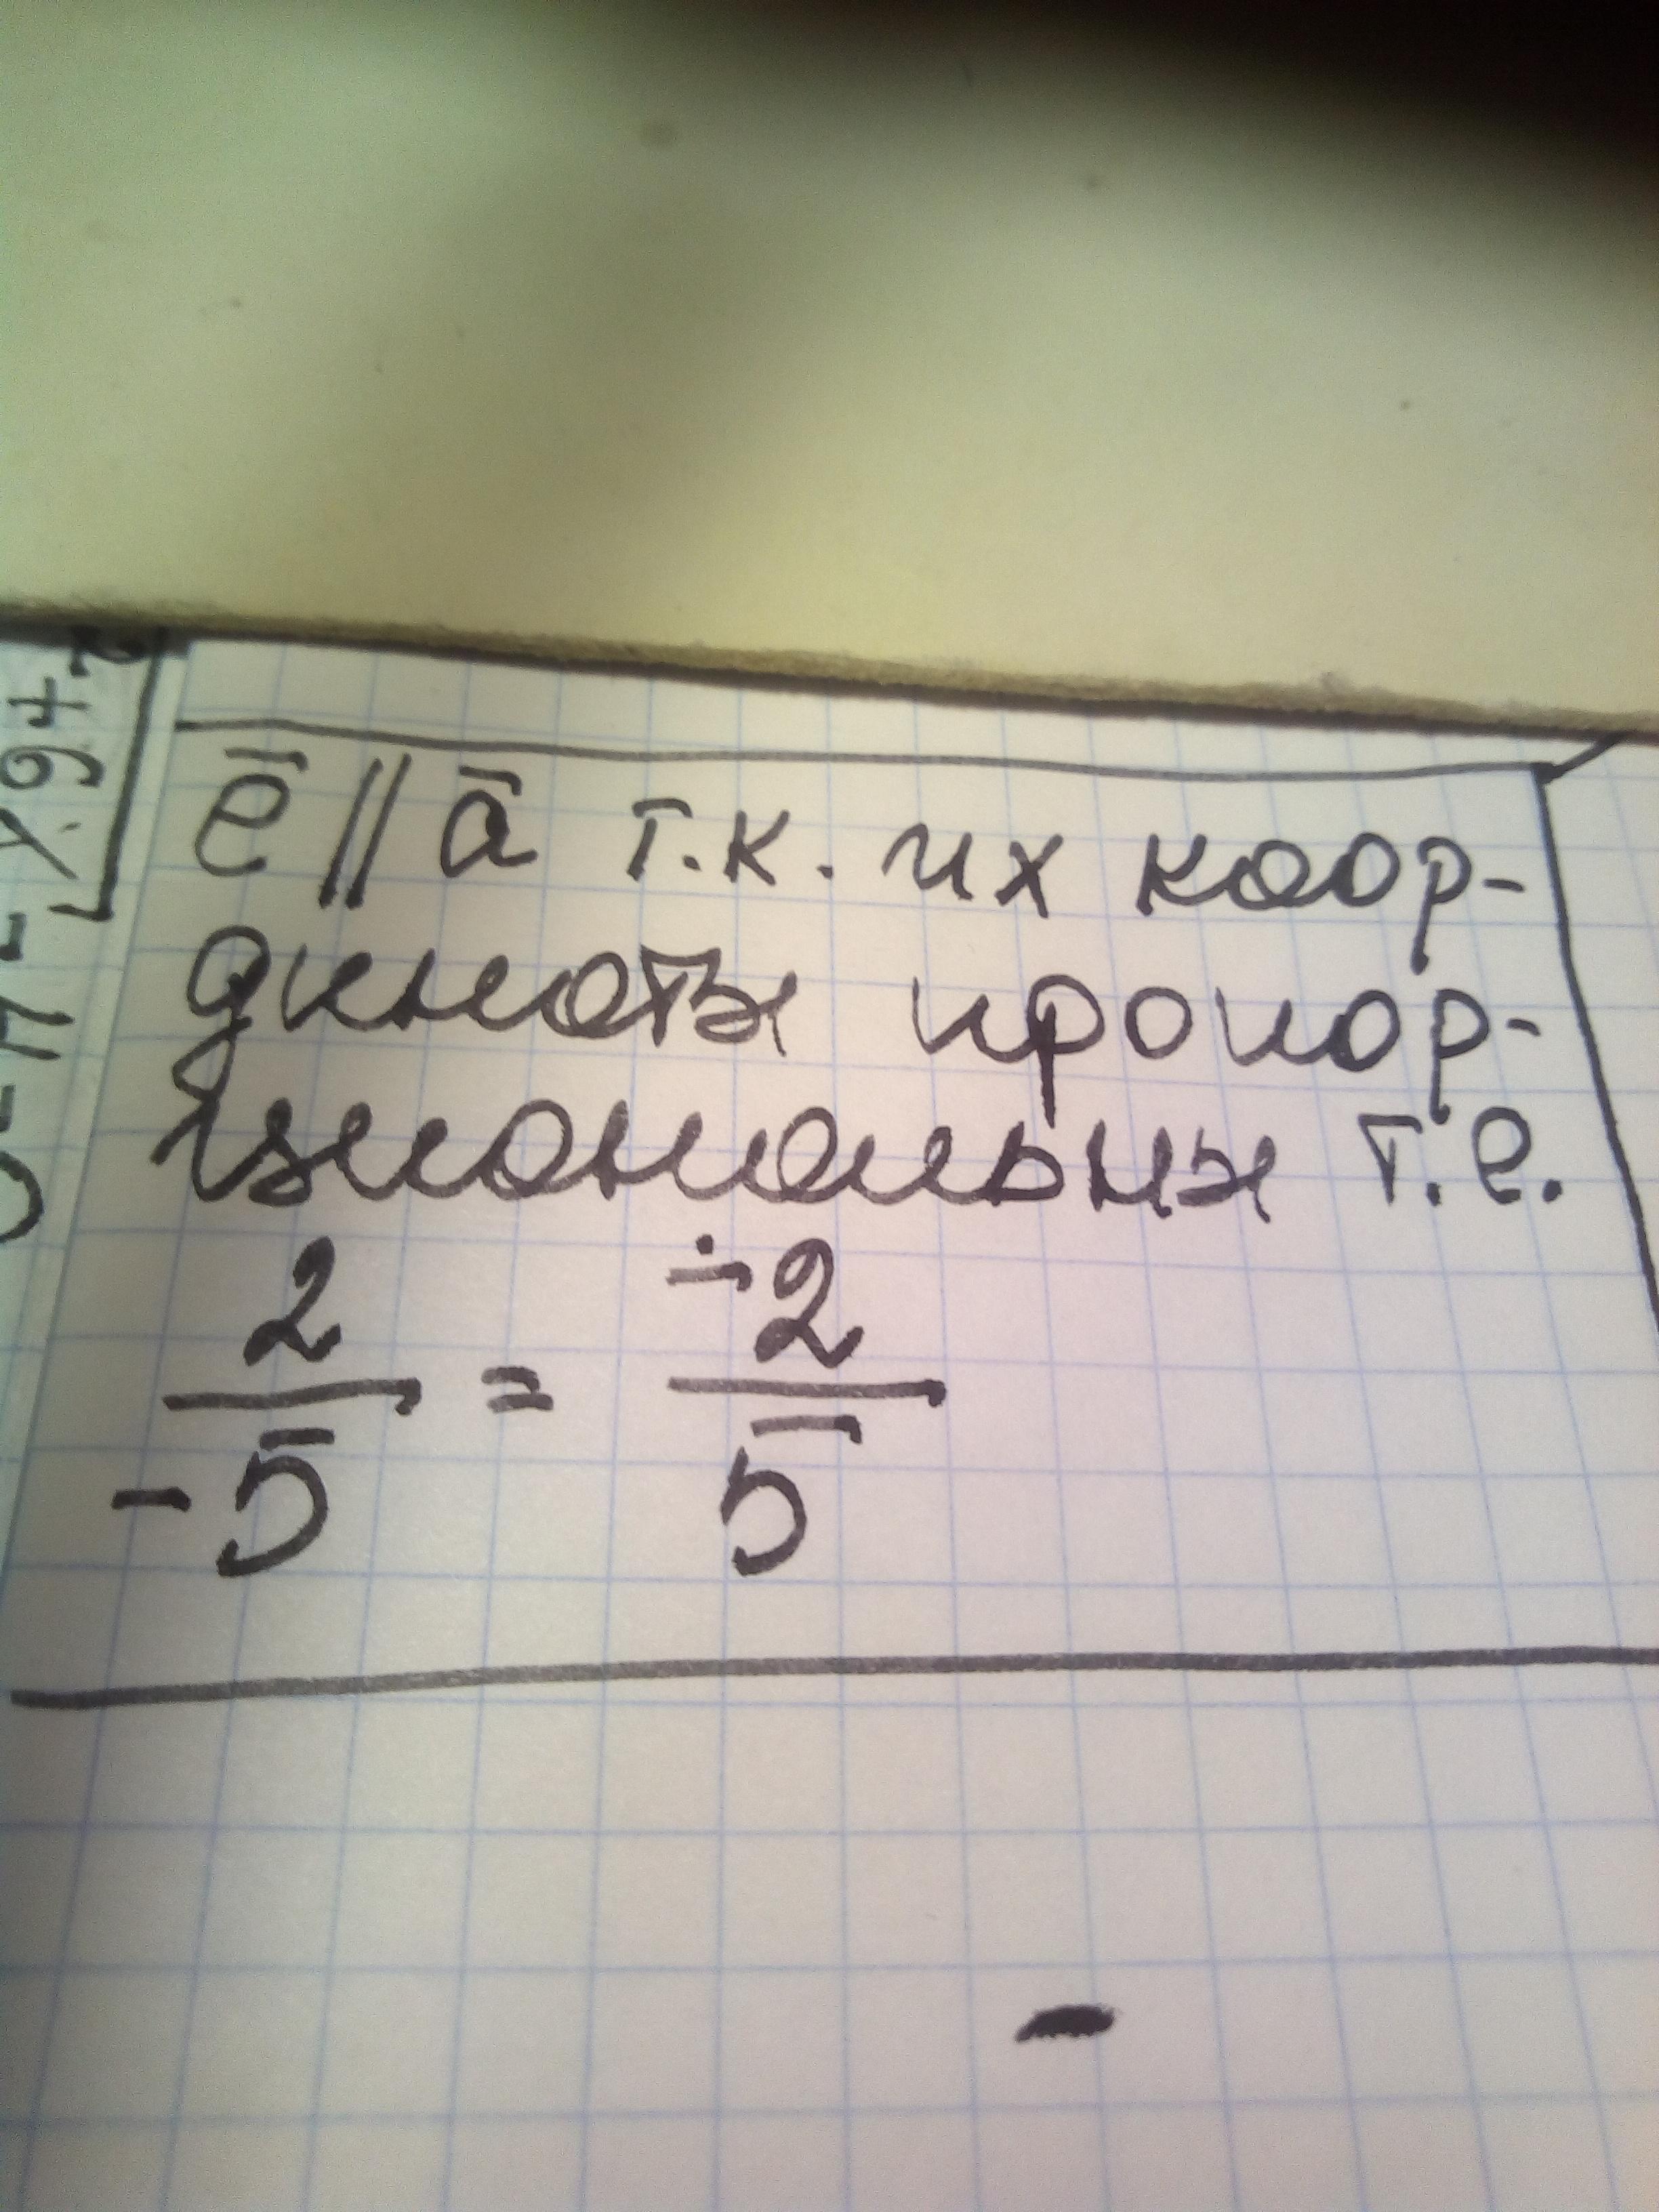 ē || ā т.к. их коор-
динаты пропор-
циональны т.е.
2/-5 = -2/5